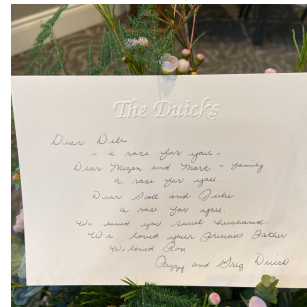 The Duicks
Dear Deb
- a rose for you -
Dear Megan and Mark & family
a rose for you all.
Dear Scott and Julie
a rose for you
We loved you sweet husband
We loved your precious Father
We loved Ron
Peggy and Greg Duick